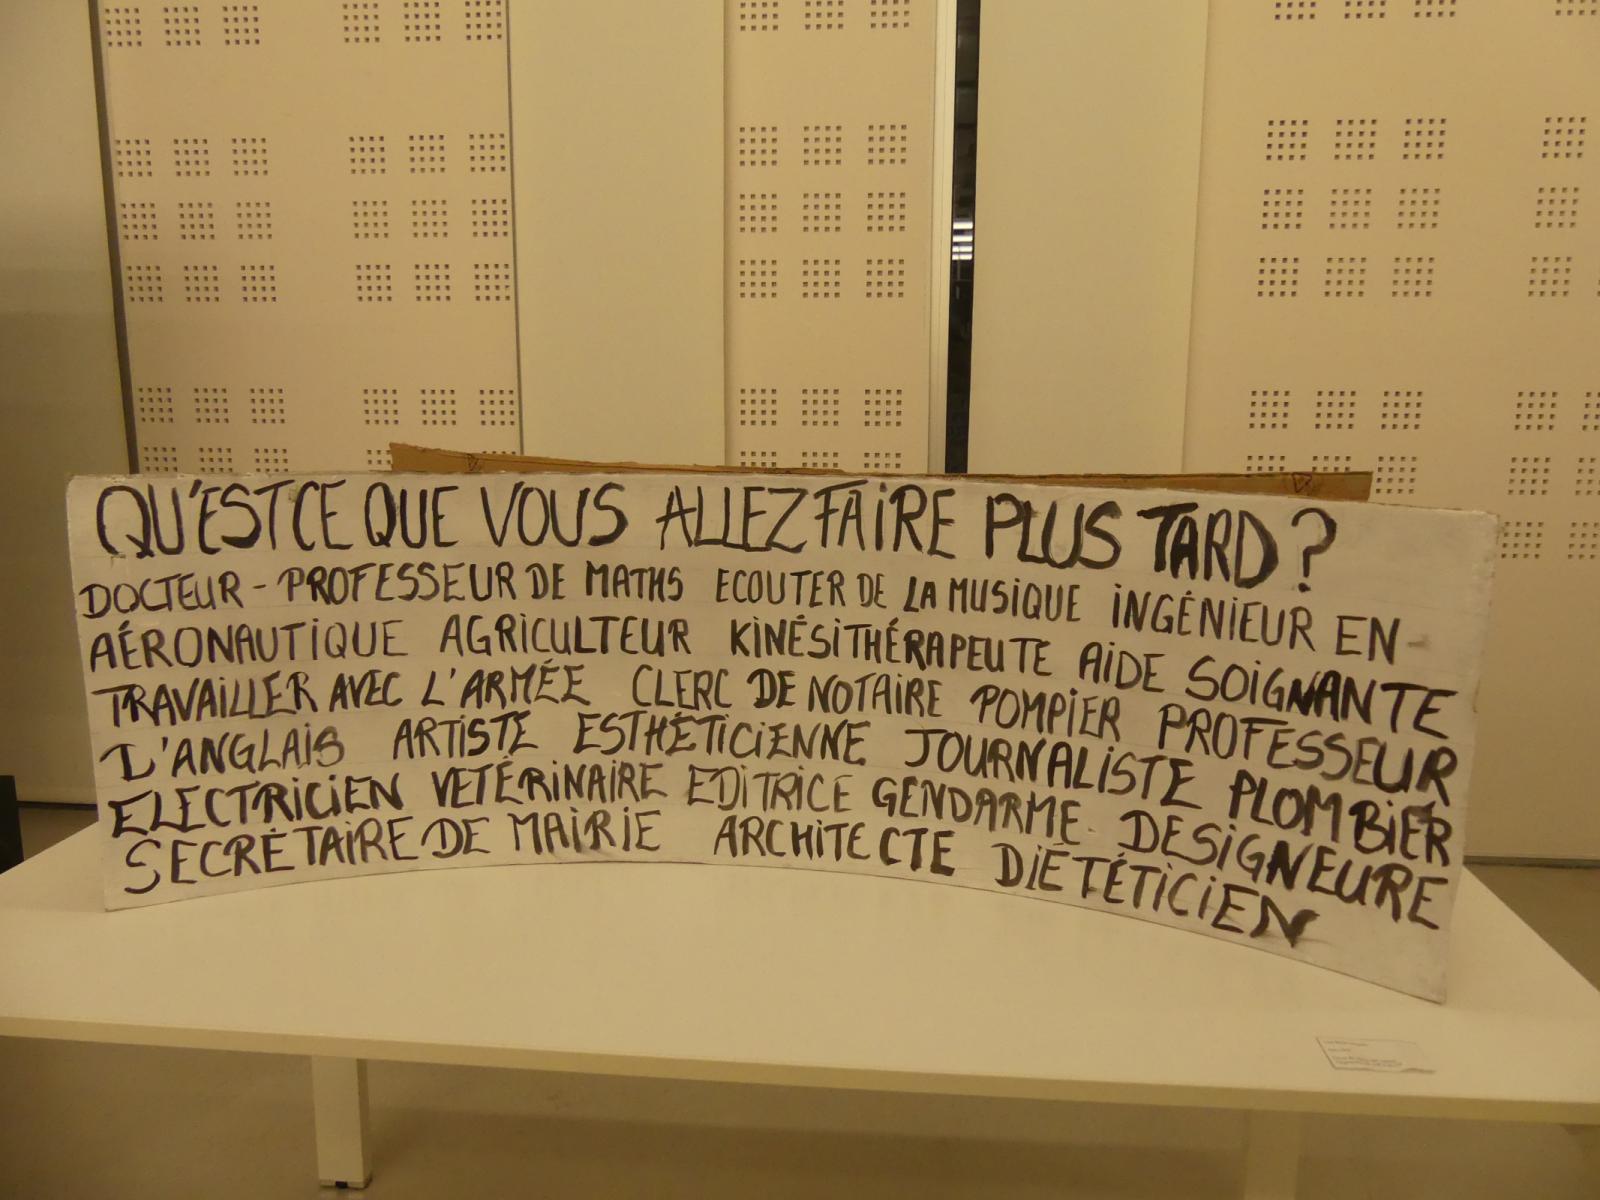 QU'EST CE QUE VOUS ALLEZ FAIRE PLUS TARD ?
DOCTEUR - PROFESSEUR DE MATHS ECOUTER DE LA MUSIQUE INGÉNIEUR EN -
AÉRONAUTIQUE AGRICULTEUR KINÉSITHÉRAPEUTE AIDE SOIGNANTE
TRAVAILLER AVEC L'ARMÉE CLERC DE NOTAIRE POMPIER PROFESSEUR
D'ANGLAIS ARTISTE ESTHÉTICIENNE JOURNALISTE PLOMBIER
ELECTRICIEN VETÉRINAIRE EDITRICE GENDARME DESIGNEURE
SECRÉTAIRE DE MAIRIE ARCHITECTE DIÉTÉTICIEN